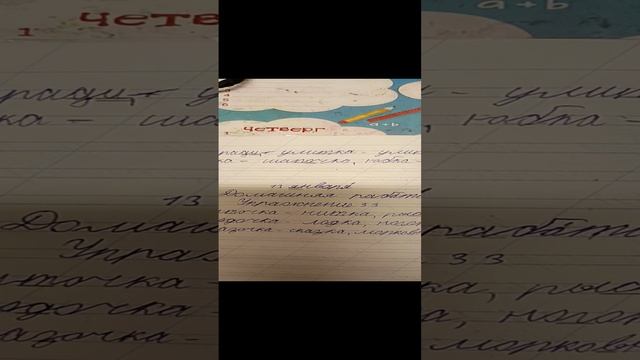 четверг
a+b
улитка - улит
ка - шапочка, юбка -
13 января
Домашняя работа
Упражнение 33
иточка - нитка, рыб
одочка - лодка, ного
азочка - сказка, морков